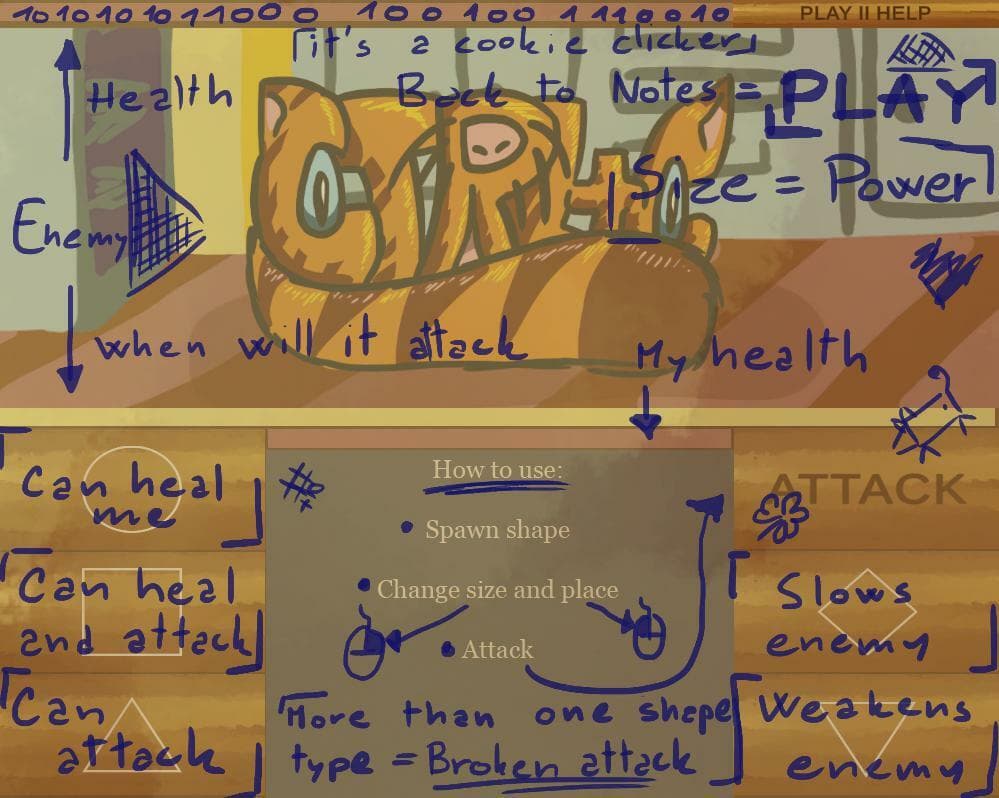 10101010 1110000 100 100 1 1100 10
PLAY II HELP
it's a cookie clicker
Back to Notes = PLAY
Health
Size = Power
Enemy
when will it attack
My health
Can heal
me
How to use:
ATTACK
• Spawn shape
Can heal
and attack
• Change size and place
Slows
enemy
• Attack
Can
attack
More than one shape
type = Broken attack
Weakens
enemy